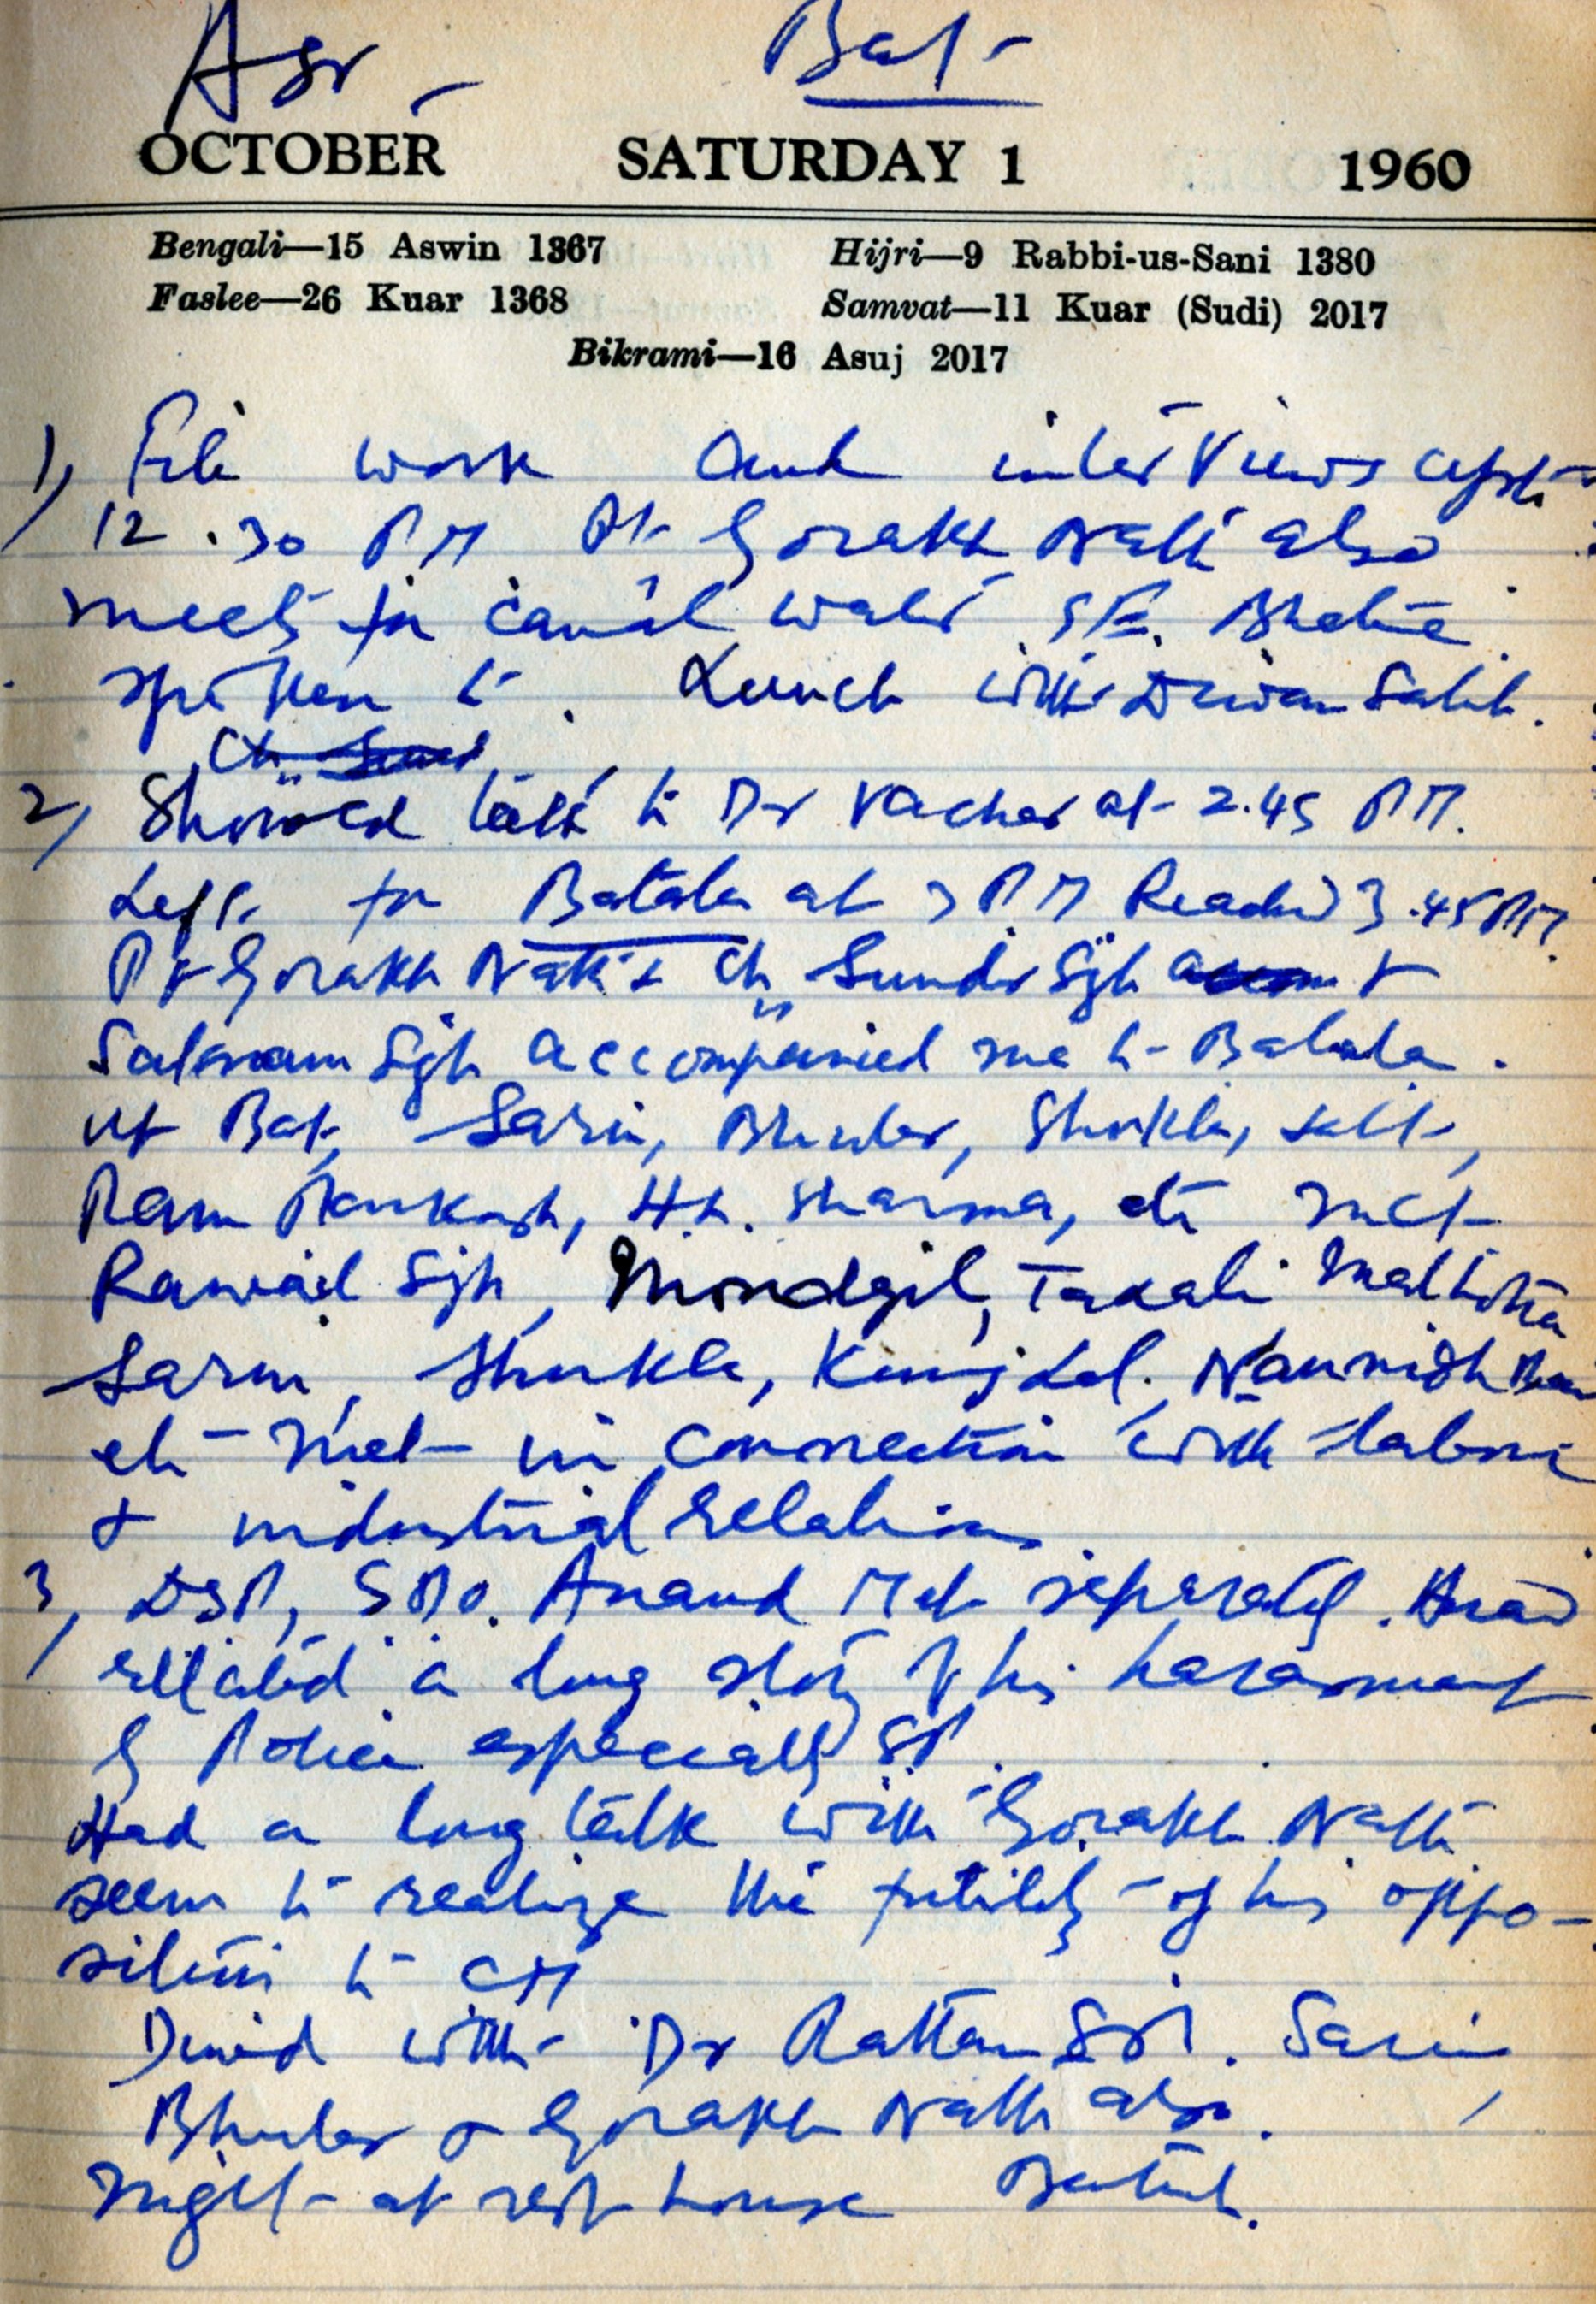 Asr - Bat-
OCTOBER SATURDAY 1 1960
Bengali—15 Aswin 1367 Hijri—9 Rabbi-us-Sani 1380
Faslee—26 Kuar 1368 Samvat—11 Kuar (Sudi) 2017
Bikrami—16 Asuj 2017
1) File work and interviews upto
12.30 PM Pt Gorakh Nath also
meets for canal water. SE. Bhatia
spoken to. Lunch with Dewan Sahib.
Ch
2) Showed teeth to Dr Vacher at 2.45 PM.
Left for Batala at 3 PM Reached 3.45 PM.
Pt Gorakh Nath & Ch Sunder Sgh &
Satnam Sgh accompanied me to Batala.
At Bat, Sarin, Bhular, Shukla,
Ram Parkash, H.L. Sharma, etc met
Rawail Sgh, Mondgil, Malhotra
Sarin, Shukla, Kunj Lal.
etc met in connection with labour
& industrial relations
3) DSP, SDO. Anand Met separately. Anand
related a long story of his harassment
by Police especially SP.
Had a long talk with Gorakh Nath
seem to realize the futility of his oppo-
sition to CM
Dined with Dr Rattan Sgh. Sarin,
Bhular & Gorakh Nath also.
Night at rest house Batala.